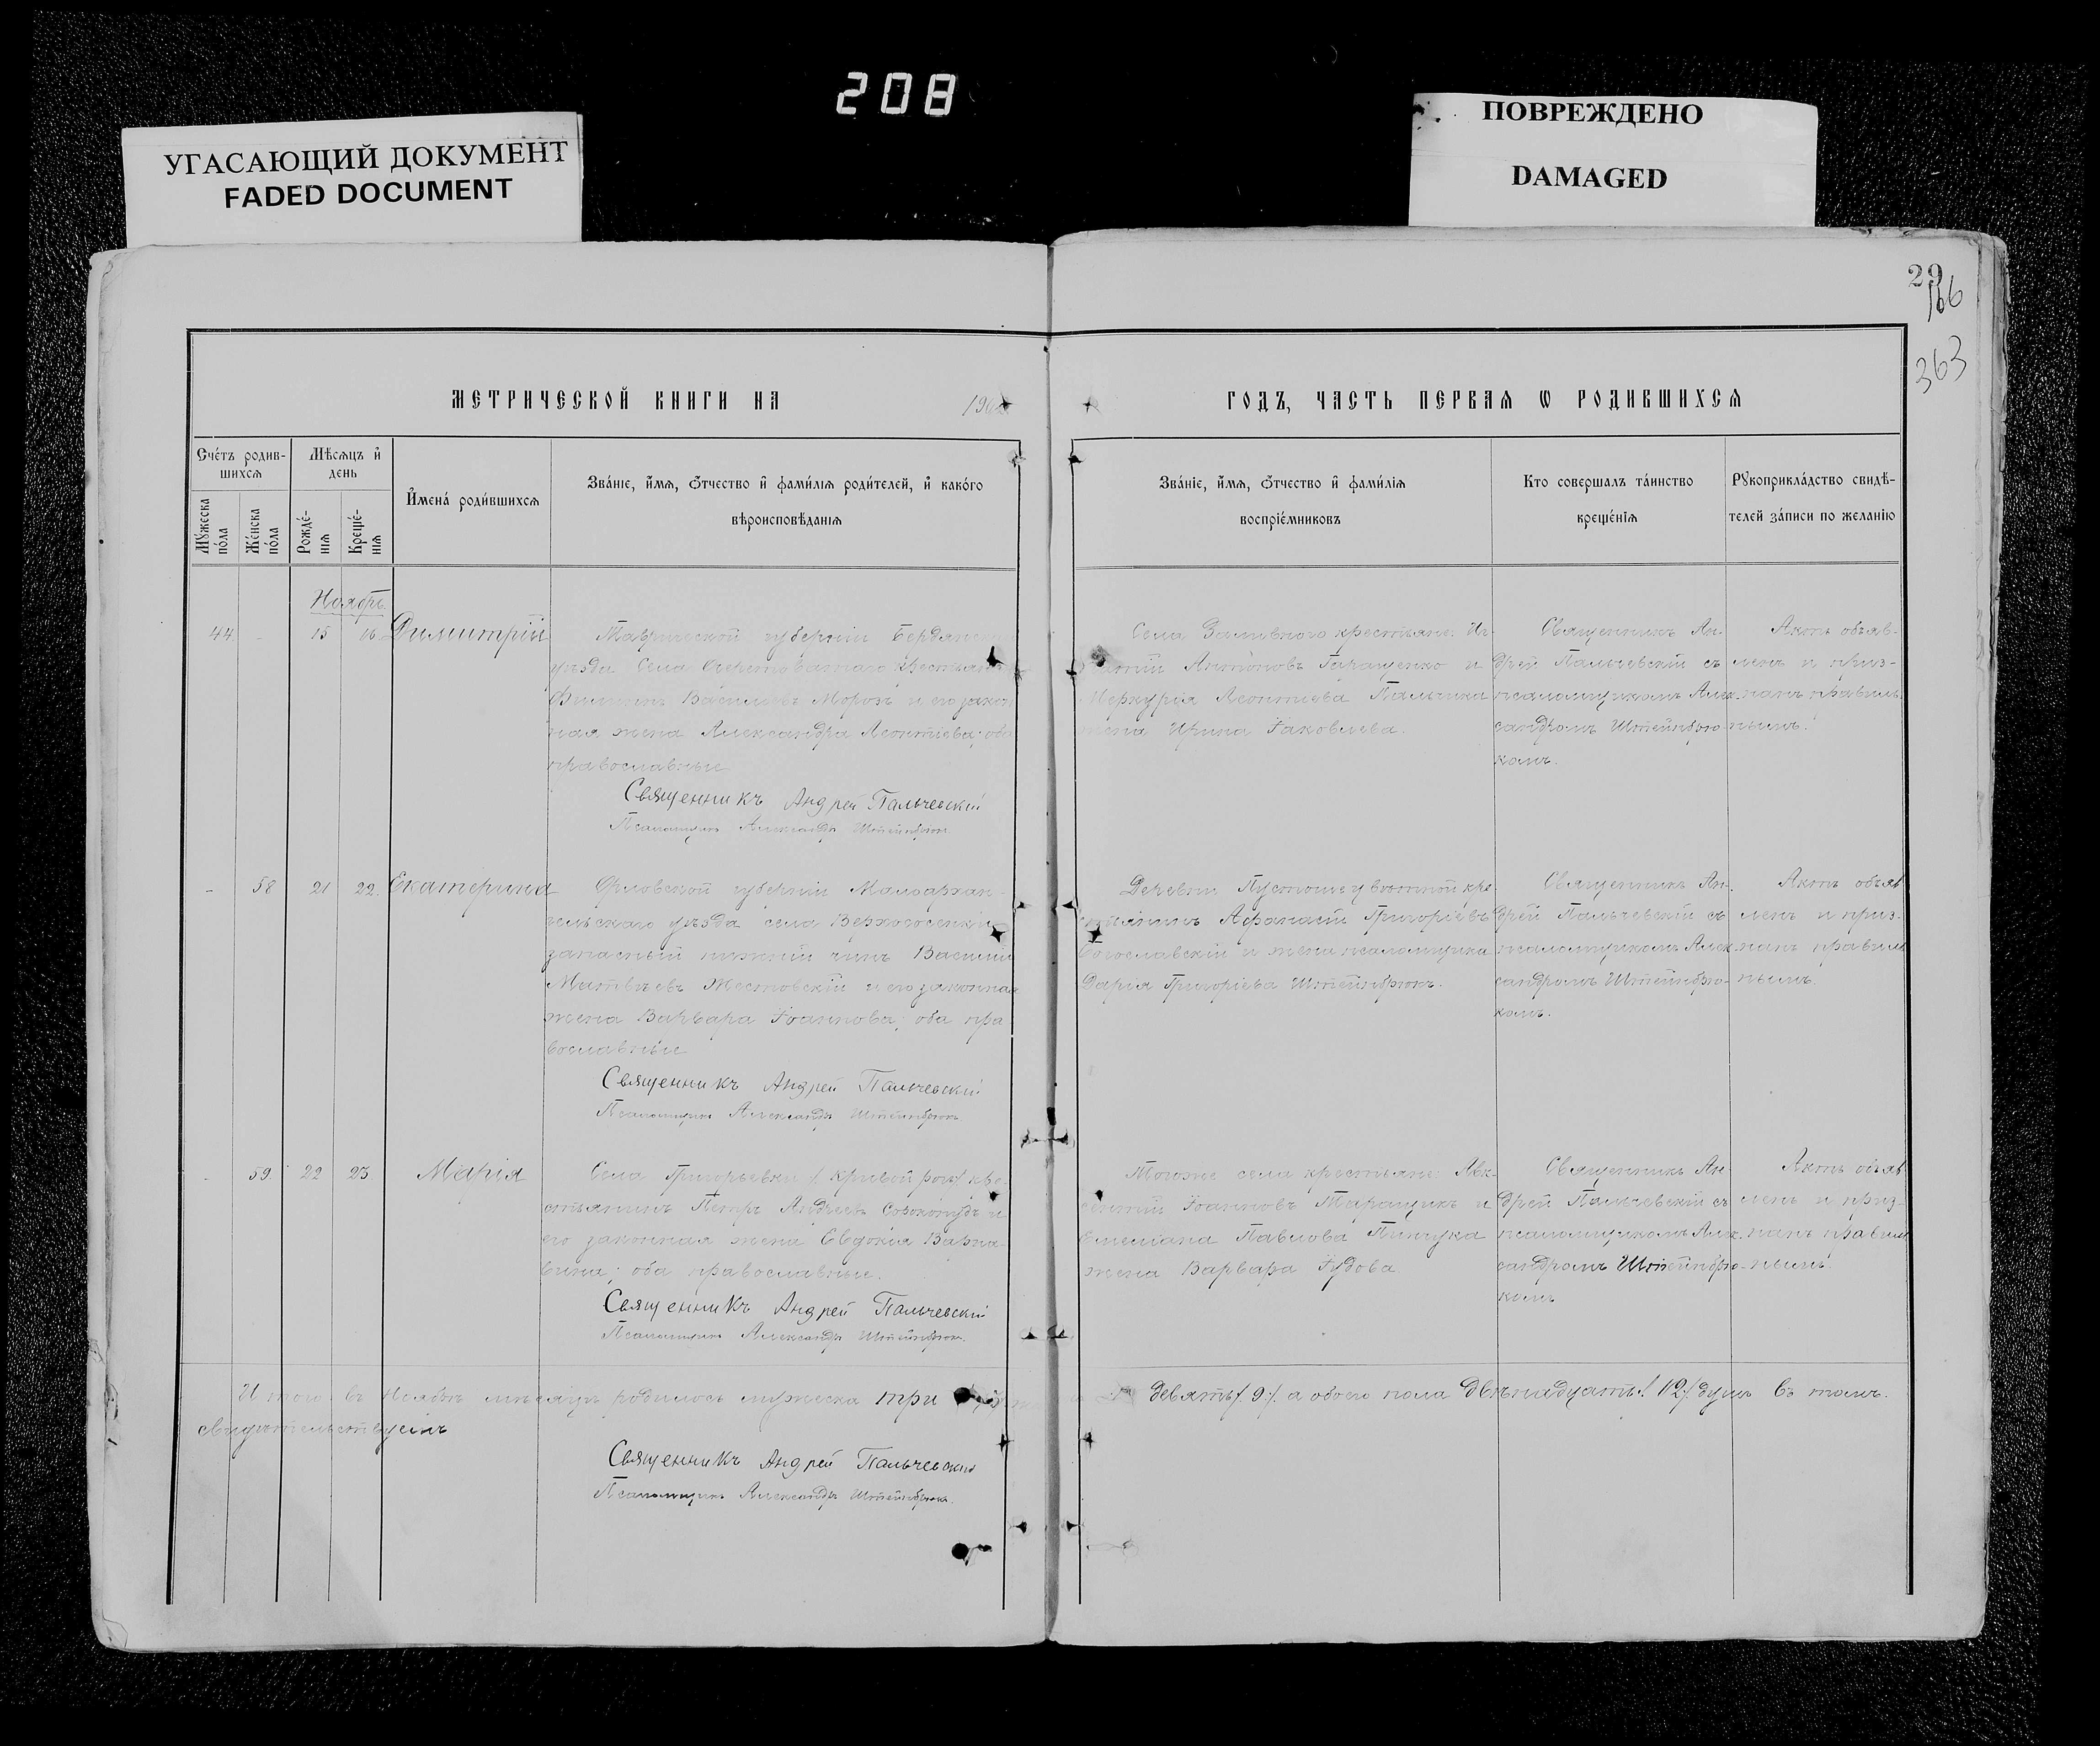 208
УГАСАЮЩИЙ ДОКУМЕНТ
FADED DOCUMENT
ПОВРЕЖДЕНО
DAMAGED
29
166
363
МЕТРИЧЕСКОЙ КНИГИ НА
ГОДЪ, ЧАСТЬ ПЕРВАѦ Ѡ РОДИВШИХСѦ
Счéтъ родив-
шихсѧ
Мѣсѧцъ и҆
день
Мꙋ́жеска
по́ла
Же́нска
по́ла
Рожде́-
нїѧ
Креще́-
нїѧ
И҆мена̀ роди́вшихсѧ
Зва́нїе, и҆́мѧ, ѻ҆́тчество и҆ фами́лїѧ роди́телей, и҆ како́гѡ
вѣроисповѣ́данїѧ
Зва́нїе, и҆́мѧ, ѻ҆́тчество и҆ фами́лїѧ
воспрїе́мниковъ
Кто совершалъ та́инство
креще́нїѧ
Рꙋкоприкла́дство свидѣ́-
телей за́писи по желанїю
Ноябрь.
44 - 15 16 Димитрій
Таврической губерніи Бердянскаго
уѣзда Села крестьянинъ
Филиппъ Васильевъ Морозъ и его закон
ная жена Александра Леонтіева; оба
православные
Священникъ Андрей Пальчевскій
Псаломщикъ Александръ Штейнбрюк.
Села Заливного крестьяне: Иг-
натій Антоновъ Гаращенко и
Меркурія Леонтіева Пальчика
жена Ирина Іаковлева.
Священникъ Ан-
дрей Пальчевскій съ
псаломщикомъ Алек-
сандромъ Штейнбрю-
комъ.
Актъ объяв-
ленъ и приз-
нанъ правиль-
нымъ.
- 58 21 22. Екатерина
Орловской губерніи Малоархан-
гельскаго уѣзда села Верхососенки
запасный нижній чинъ Василій
Матвѣевъ Жестовскій и его законная
жена Варвара Іоаннова; оба пра
вославные
Священникъ Андрей Пальчевскій
Псаломщикъ Александръ Штейнбрюкъ.
Деревни кре-
стьянинъ Афанасій Григоріевъ
Богославскій и жена псаломщика
Дарія Григоріева Штейнбрюкъ.
Священникъ Ан-
дрей Пальчевскій съ
псаломщикомъ Алек-
сандромъ Штейнбрю-
комъ.
Актъ объяв
ленъ и приз-
нанъ правиль
нымъ.
- 59. 22 23 Марія
Села Григорьевки /. Кривой рогъ/ кре-
стьянинъ Петръ Андреевъ и
его законная жена Евдокія Варна-
вина; оба православные.
Священникъ Андрей Пальчевскій
Псаломщикъ Александръ Штейнбрюк.
Тогоже села крестьяне: Авк-
сентій Іоанновъ Таращикъ и
Емеліана Павлова Пинчука
жена Варвара Іудова
Священникъ Ан-
дрей Пальчевскій съ
псаломщикомъ Алек-
сандромъ Штейнбрю-
комъ
Актъ объяв
ленъ и приз-
нанъ правиль
нымъ.
Итого въ Ноябрѣ мѣсяцѣ родилось мужеска три девять/. 9./. а обоего пола двѣнадцать/. 12/. душъ въ томъ.
свидѣтельствуемъ
Священникъ Андрей Пальчевскій
Псаломщикъ Александръ Штейнбрюкъ.